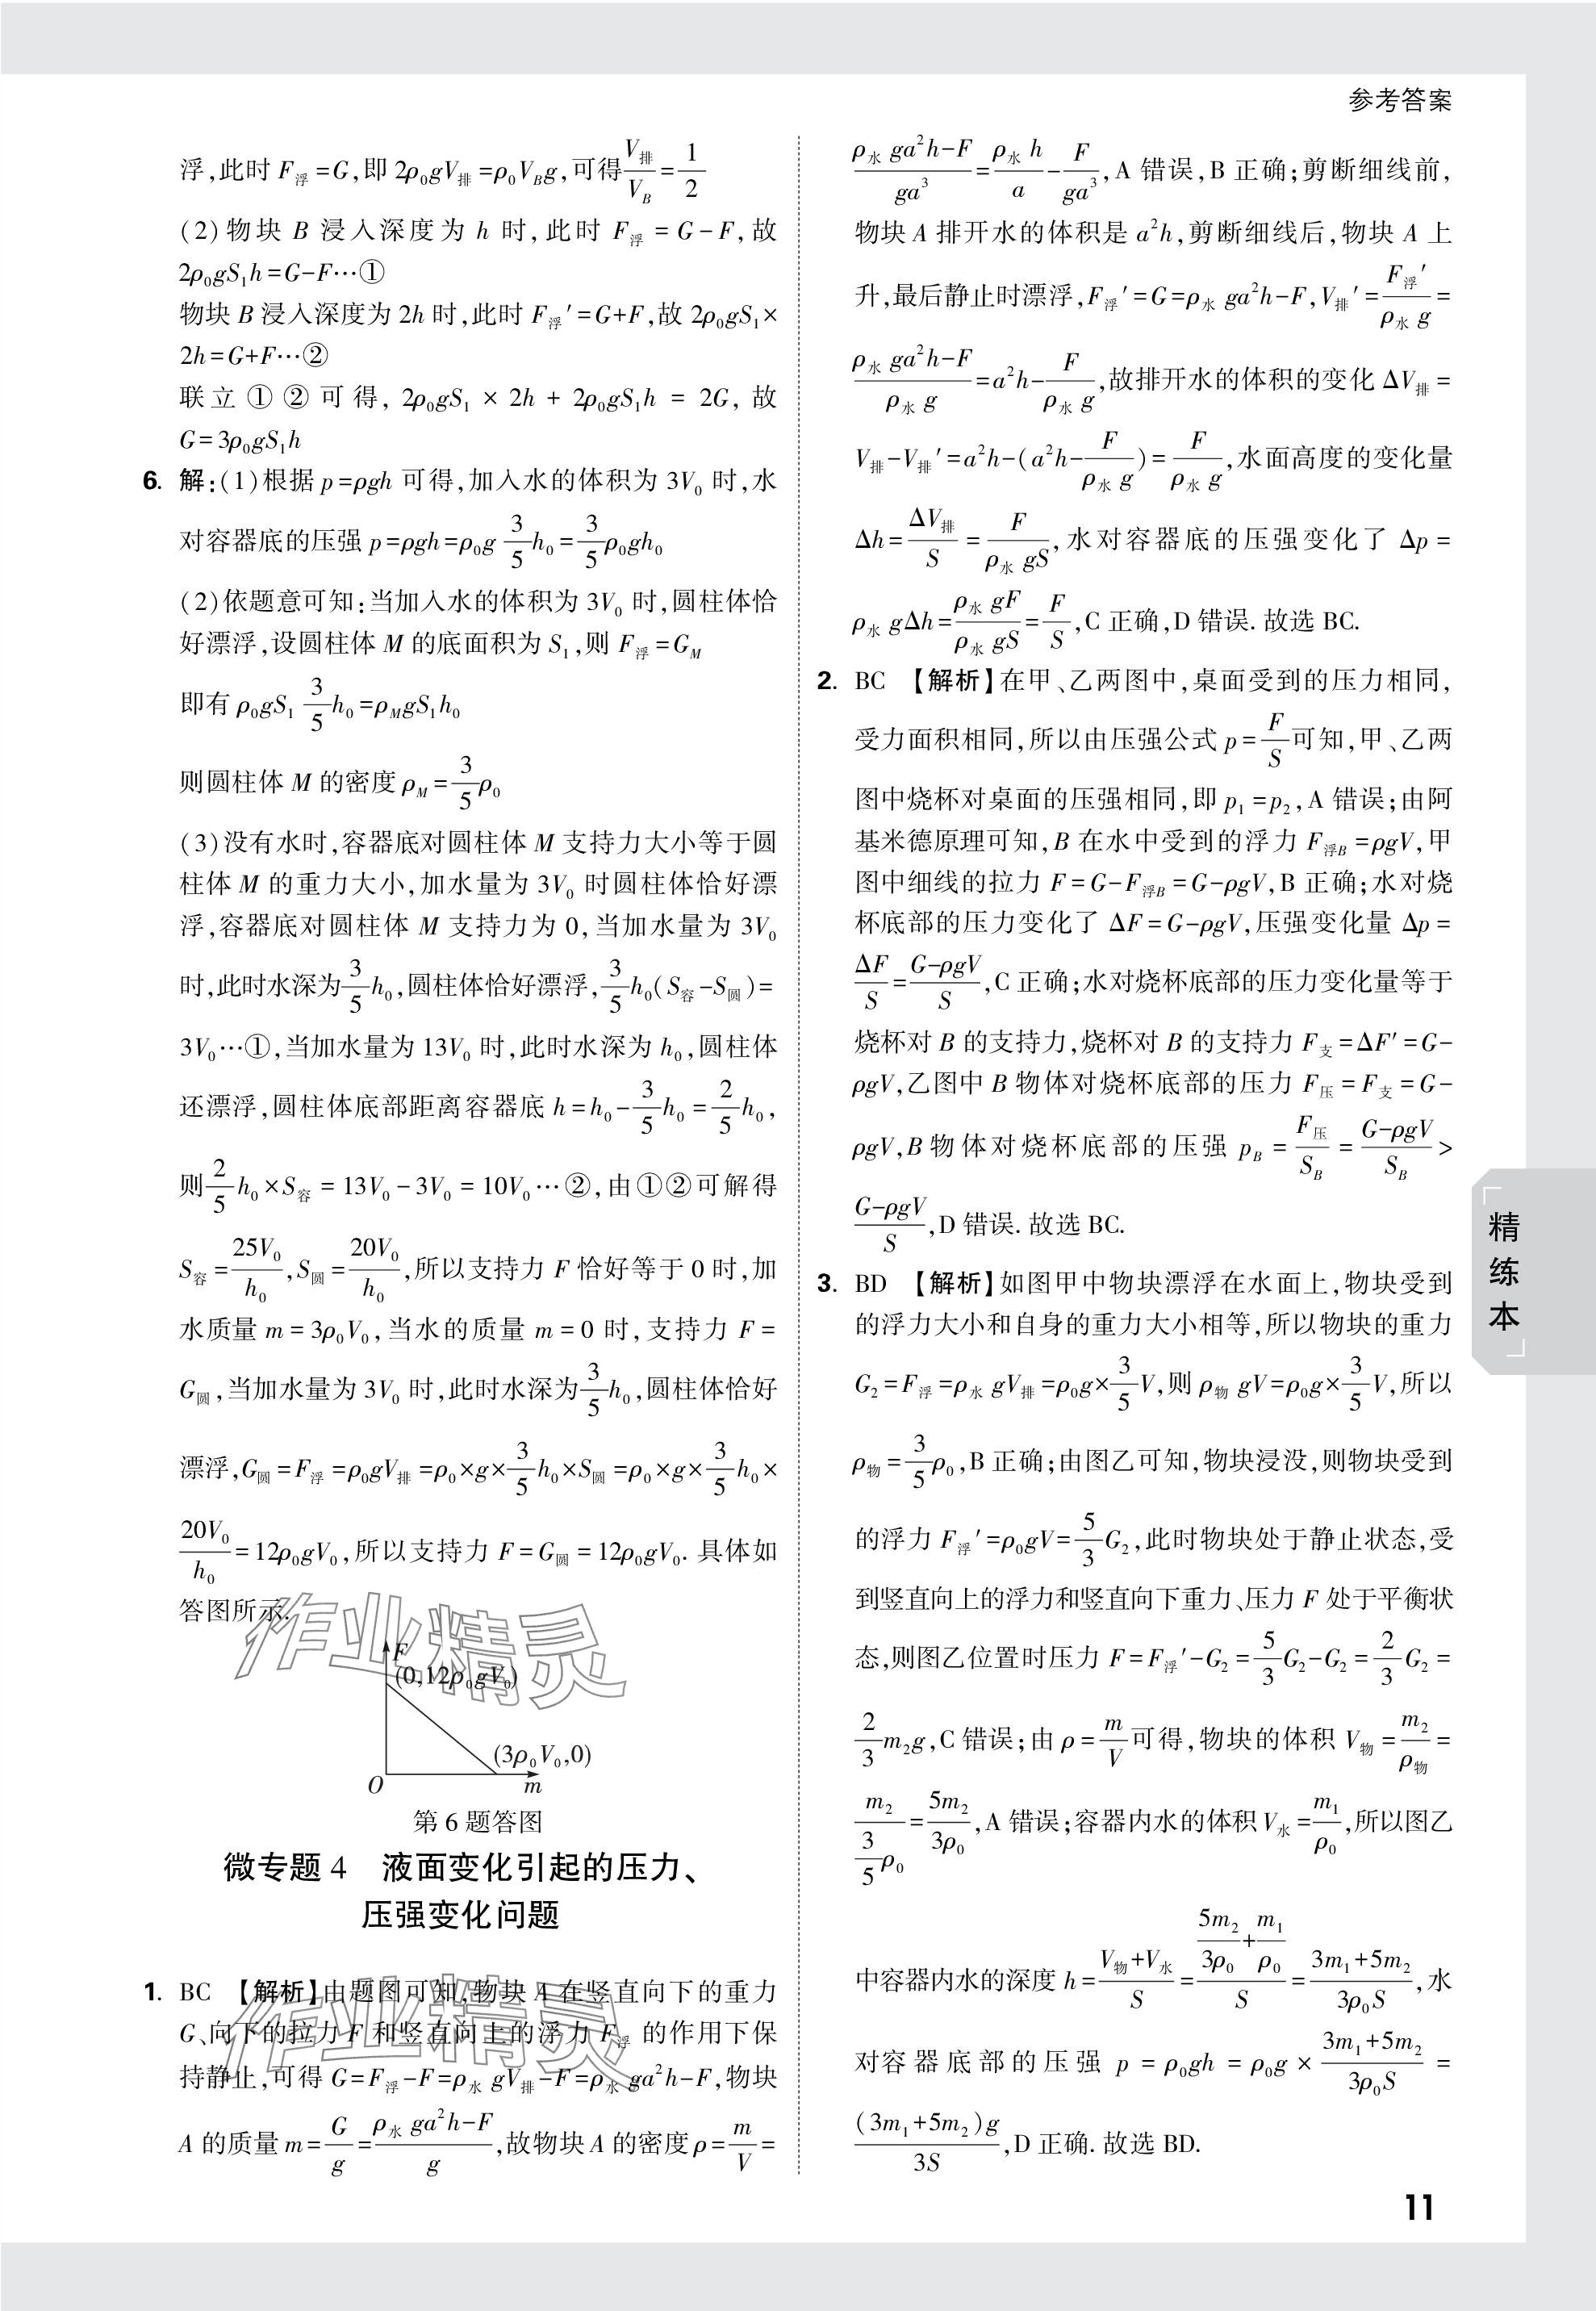 参考答案
浮,此时 F浮=G,即 2ρ₀gV排=ρ₀V_Bg,可得V排/V_B=1/2
(2)物块 B 浸入深度为 h 时,此时 F浮=G-F,故
2ρ₀gS₁h=G-F…①
物块 B 浸入深度为 2h 时,此时 F浮′=G+F,故 2ρ₀gS₁×
2h=G+F…②
联立①②可得, 2ρ₀gS₁×2h+2ρ₀gS₁h=2G,故
G=3ρ₀gS₁h
6. 解:(1)根据 p=ρgh 可得,加入水的体积为 3V₀ 时,水
对容器底的压强 p=ρgh=ρ₀g 3/5 h₀=3/5 ρ₀gh₀
(2)依题意可知:当加入水的体积为 3V₀ 时,圆柱体恰
好漂浮,设圆柱体 M 的底面积为 S₁,则 F浮=G_M
即有 ρ₀gS₁ 3/5 h₀=ρ_MgS₁h₀
则圆柱体 M 的密度 ρ_M=3/5 ρ₀
(3)没有水时,容器底对圆柱体 M 支持力大小等于圆
柱体 M 的重力大小,加水量为 3V₀ 时圆柱体恰好漂
浮,容器底对圆柱体 M 支持力为 0,当加水量为 3V₀
时,此时水深为 3/5 h₀,圆柱体恰好漂浮, 3/5 h₀(S容-S圆)=
3V₀…①,当加水量为 13V₀ 时,此时水深为 h₀,圆柱体
还漂浮,圆柱体底部距离容器底 h=h₀-3/5 h₀=2/5 h₀,
则 2/5 h₀×S容=13V₀-3V₀=10V₀…②,由①②可解得
S容=25V₀/h₀,S圆=20V₀/h₀,所以支持力 F 恰好等于 0 时,加
水质量 m=3ρ₀V₀,当水的质量 m=0 时,支持力 F=
G圆,当加水量为 3V₀ 时,此时水深为 3/5 h₀,圆柱体恰好
漂浮,G圆=F浮=ρ₀gV排=ρ₀×g×3/5 h₀×S圆=ρ₀×g×3/5 h₀×
20V₀/h₀=12ρ₀gV₀,所以支持力 F=G圆=12ρ₀gV₀. 具体如
答图所示.
作业精灵
F
(0,12ρ₀gV₀)
(3ρ₀V₀,0)
O m
第 6 题答图
微专题 4 液面变化引起的压力、
压强变化问题
1. BC 【解析】由题图可知,物块 A 在竖直向下的重力
G、向下的拉力 F 和竖直向上的浮力 F浮 的作用下保
作业精灵
持静止,可得 G=F浮-F=ρ水 gV排-F=ρ水 ga²h-F,物块
A 的质量 m=G/g=(ρ水 ga²h-F)/g,故物块 A 的密度 ρ=m/V=
(ρ水 ga²h-F)/ga³=ρ水 h/a-F/ga³,A 错误,B 正确;剪断细线前,
物块 A 排开水的体积是 a²h,剪断细线后,物块 A 上
升,最后静止时漂浮,F浮′=G=ρ水 ga²h-F,V排′=F浮′/ρ水 g=
(ρ水 ga²h-F)/ρ水 g=a²h-F/ρ水 g,故排开水的体积的变化 ΔV排=
V排-V排′=a²h-(a²h-F/ρ水 g)=F/ρ水 g,水面高度的变化量
Δh=ΔV排/S=F/ρ水 gS,水对容器底的压强变化了 Δp=
ρ水 gΔh=ρ水 gF/ρ水 gS=F/S,C 正确,D 错误. 故选 BC.
2. BC 【解析】在甲、乙两图中,桌面受到的压力相同,
受力面积相同,所以由压强公式 p=F/S可知,甲、乙两
图中烧杯对桌面的压强相同,即 p₁=p₂,A 错误;由阿
基米德原理可知,B 在水中受到的浮力 F浮B=ρgV,甲
图中细线的拉力 F=G-F浮B=G-ρgV,B 正确;水对烧
杯底部的压力变化了 ΔF=G-ρgV,压强变化量 Δp=
ΔF/S=(G-ρgV)/S,C 正确;水对烧杯底部的压力变化量等于
烧杯对 B 的支持力,烧杯对 B 的支持力 F支=ΔF′=G-
ρgV,乙图中 B 物体对烧杯底部的压力 F压=F支=G-
ρgV,B 物体对烧杯底部的压强 p_B=F压/S_B=(G-ρgV)/S_B>
(G-ρgV)/S,D 错误. 故选 BC.
3. BD 【解析】如图甲中物块漂浮在水面上,物块受到
的浮力大小和自身的重力大小相等,所以物块的重力
G₂=F浮=ρ水 gV排=ρ₀g×3/5 V,则 ρ物 gV=ρ₀g×3/5 V,所以
ρ物=3/5 ρ₀,B 正确;由图乙可知,物块浸没,则物块受到
的浮力 F浮′=ρ₀gV=5/3 G₂,此时物块处于静止状态,受
到竖直向上的浮力和竖直向下重力、压力 F 处于平衡状
态,则图乙位置时压力 F=F浮′-G₂=5/3 G₂-G₂=2/3 G₂=
2/3 m₂g,C 错误;由 ρ=m/V可得,物块的体积 V物=m₂/ρ物=
m₂/(3/5 ρ₀)=5m₂/3ρ₀,A 错误;容器内水的体积 V水=m₁/ρ₀,所以图乙
中容器内水的深度 h=(V物+V水)/S=(5m₂/3ρ₀+m₁/ρ₀)/S=(3m₁+5m₂)/3ρ₀S,水
对容器底部的压强 p=ρ₀gh=ρ₀g×(3m₁+5m₂)/3ρ₀S=
(3m₁+5m₂)g/3S,D 正确. 故选 BD.
精练本
11